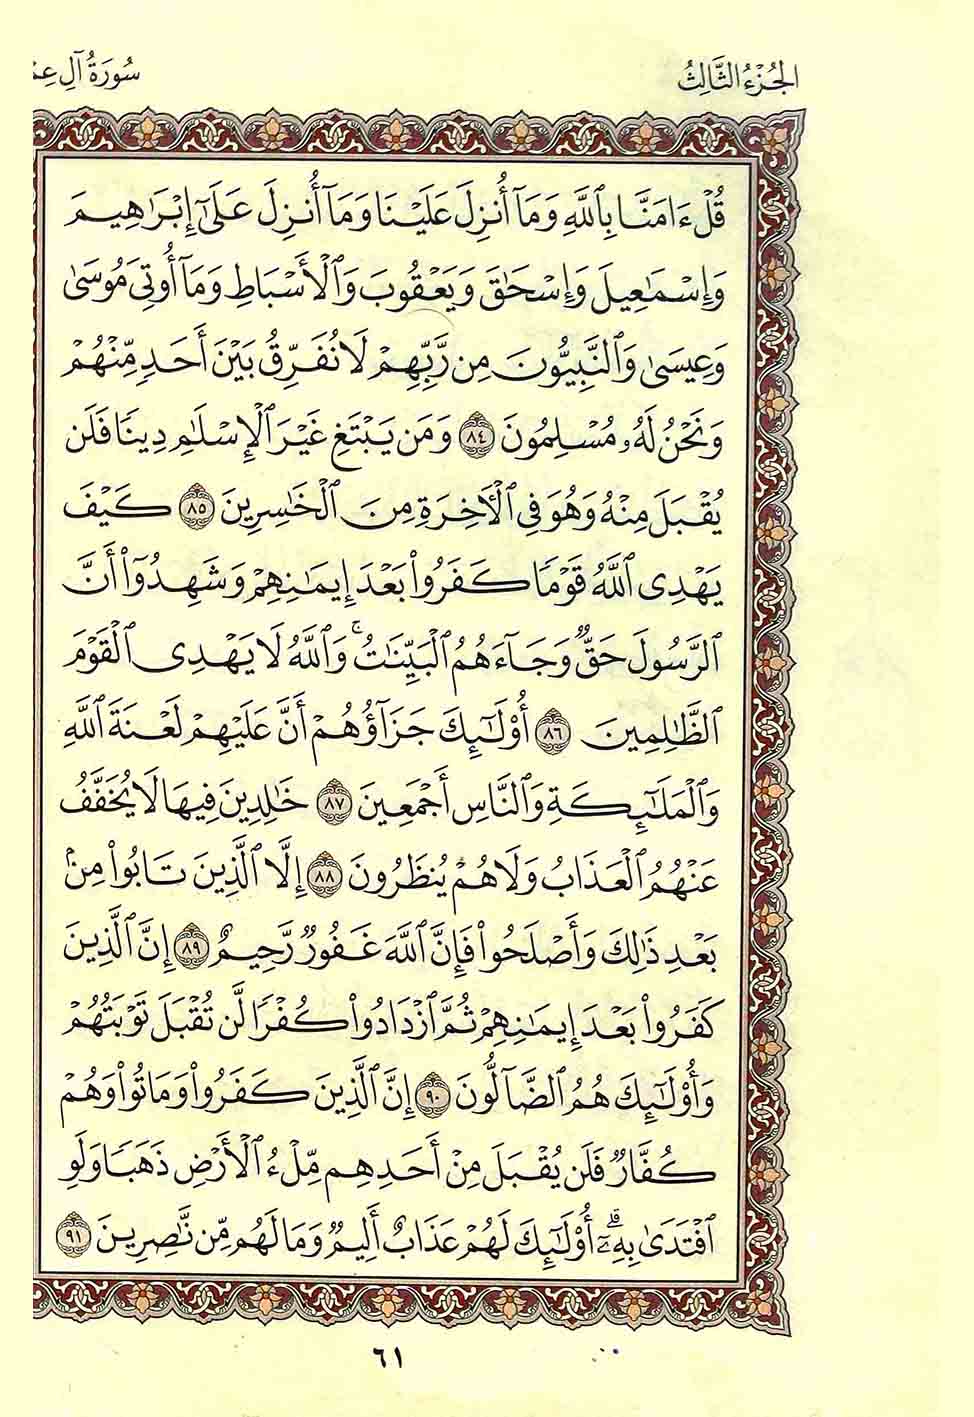 الجُزْءُ الثَّالِثُ
سُورَةُ آلِ عِمْ
قُلْ ءَامَنَّا بِٱللَّهِ وَمَآ أُنزِلَ عَلَيْنَا وَمَآ أُنزِلَ عَلَىٰٓ إِبْرَٰهِيمَ
وَإِسْمَٰعِيلَ وَإِسْحَٰقَ وَيَعْقُوبَ وَٱلْأَسْبَاطِ وَمَآ أُوتِىَ مُوسَىٰ
وَعِيسَىٰ وَٱلنَّبِيُّونَ مِن رَّبِّهِمْ لَا نُفَرِّقُ بَيْنَ أَحَدٍ مِّنْهُمْ
وَنَحْنُ لَهُۥ مُسْلِمُونَ ٨٤ وَمَن يَبْتَغِ غَيْرَ ٱلْإِسْلَٰمِ دِينًا فَلَن
يُقْبَلَ مِنْهُ وَهُوَ فِى ٱلْءَاخِرَةِ مِنَ ٱلْخَٰسِرِينَ ٨٥ كَيْفَ
يَهْدِى ٱللَّهُ قَوْمًا كَفَرُوا۟ بَعْدَ إِيمَٰنِهِمْ وَشَهِدُوٓا۟ أَنَّ
ٱلرَّسُولَ حَقٌّ وَجَآءَهُمُ ٱلْبَيِّنَٰتُ ۚ وَٱللَّهُ لَا يَهْدِى ٱلْقَوْمَ
ٱلظَّٰلِمِينَ ٨٦ أُو۟لَٰٓئِكَ جَزَآؤُهُمْ أَنَّ عَلَيْهِمْ لَعْنَةَ ٱللَّهِ
وَٱلْمَلَٰٓئِكَةِ وَٱلنَّاسِ أَجْمَعِينَ ٨٧ خَٰلِدِينَ فِيهَا لَا يُخَفَّفُ
عَنْهُمُ ٱلْعَذَابُ وَلَا هُمْ يُنظَرُونَ ٨٨ إِلَّا ٱلَّذِينَ تَابُوا۟ مِنۢ
بَعْدِ ذَٰلِكَ وَأَصْلَحُوا۟ فَإِنَّ ٱللَّهَ غَفُورٌ رَّحِيمٌ ٨٩ إِنَّ ٱلَّذِينَ
كَفَرُوا۟ بَعْدَ إِيمَٰنِهِمْ ثُمَّ ٱزْدَادُوا۟ كُفْرًا لَّن تُقْبَلَ تَوْبَتُهُمْ
وَأُو۟لَٰٓئِكَ هُمُ ٱلضَّآلُّونَ ٩٠ إِنَّ ٱلَّذِينَ كَفَرُوا۟ وَمَاتُوا۟ وَهُمْ
كُفَّارٌ فَلَن يُقْبَلَ مِنْ أَحَدِهِم مِّلْءُ ٱلْأَرْضِ ذَهَبًا وَلَوِ
ٱفْتَدَىٰ بِهِۦٓ ۗ أُو۟لَٰٓئِكَ لَهُمْ عَذَابٌ أَلِيمٌ وَمَا لَهُم مِّن نَّٰصِرِينَ ٩١
٦١